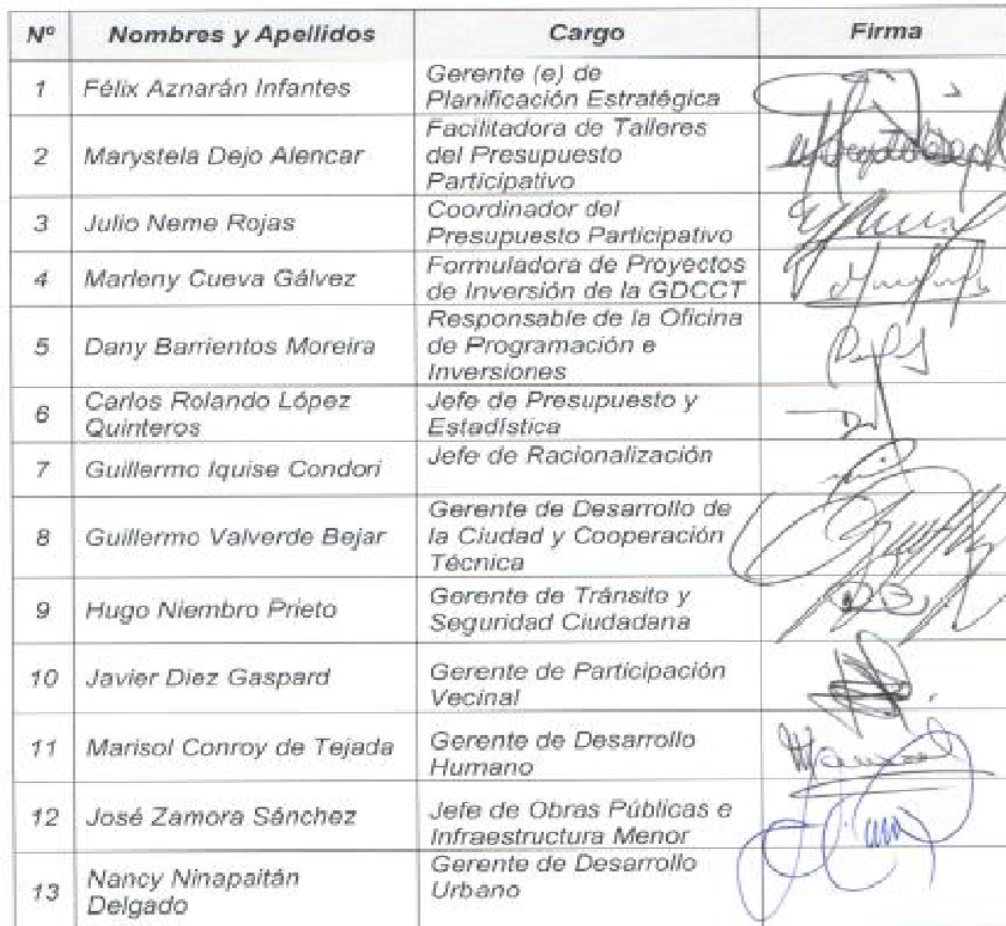 Nº Nombres y Apellidos Cargo Firma
1 Félix Aznarán Infantes Gerente (e) de
Planificación Estratégica
2 Marystela Dejo Alencar Facilitadora de Talleres
del Presupuesto
Participativo
3 Julio Neme Rojas Coordinador del
Presupuesto Participativo
4 Marleny Cueva Gálvez Formuladora de Proyectos
de Inversión de la GDCCT
5 Dany Barrientos Moreira Responsable de la Oficina
de Programación e
Inversiones
6 Carlos Rolando López
Quinteros Jefe de Presupuesto y
Estadística
7 Guillermo Iquise Condori Jefe de Racionalización
8 Guillermo Valverde Bejar Gerente de Desarrollo de
la Ciudad y Cooperación
Técnica
9 Hugo Niembro Prieto Gerente de Tránsito y
Seguridad Ciudadana
10 Javier Diez Gaspard Gerente de Participación
Vecinal
11 Marisol Conroy de Tejada Gerente de Desarrollo
Humano
12 José Zamora Sánchez Jefe de Obras Públicas e
Infraestructura Menor
13 Nancy Ninapaitán
Delgado Gerente de Desarrollo
Urbano